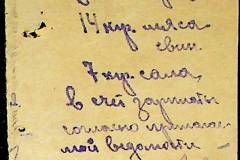 14 кгр. мяса
свин.
7 кгр. сала,
в счет зарплаты
согласно прилагае-
мой ведомости —